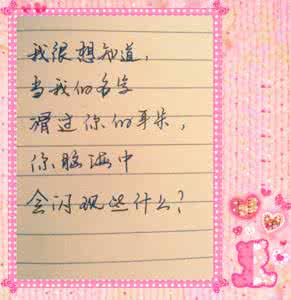 我很想知道，
当我的名字
滑过你的耳朵，
你脑海中
会闪现些什么？